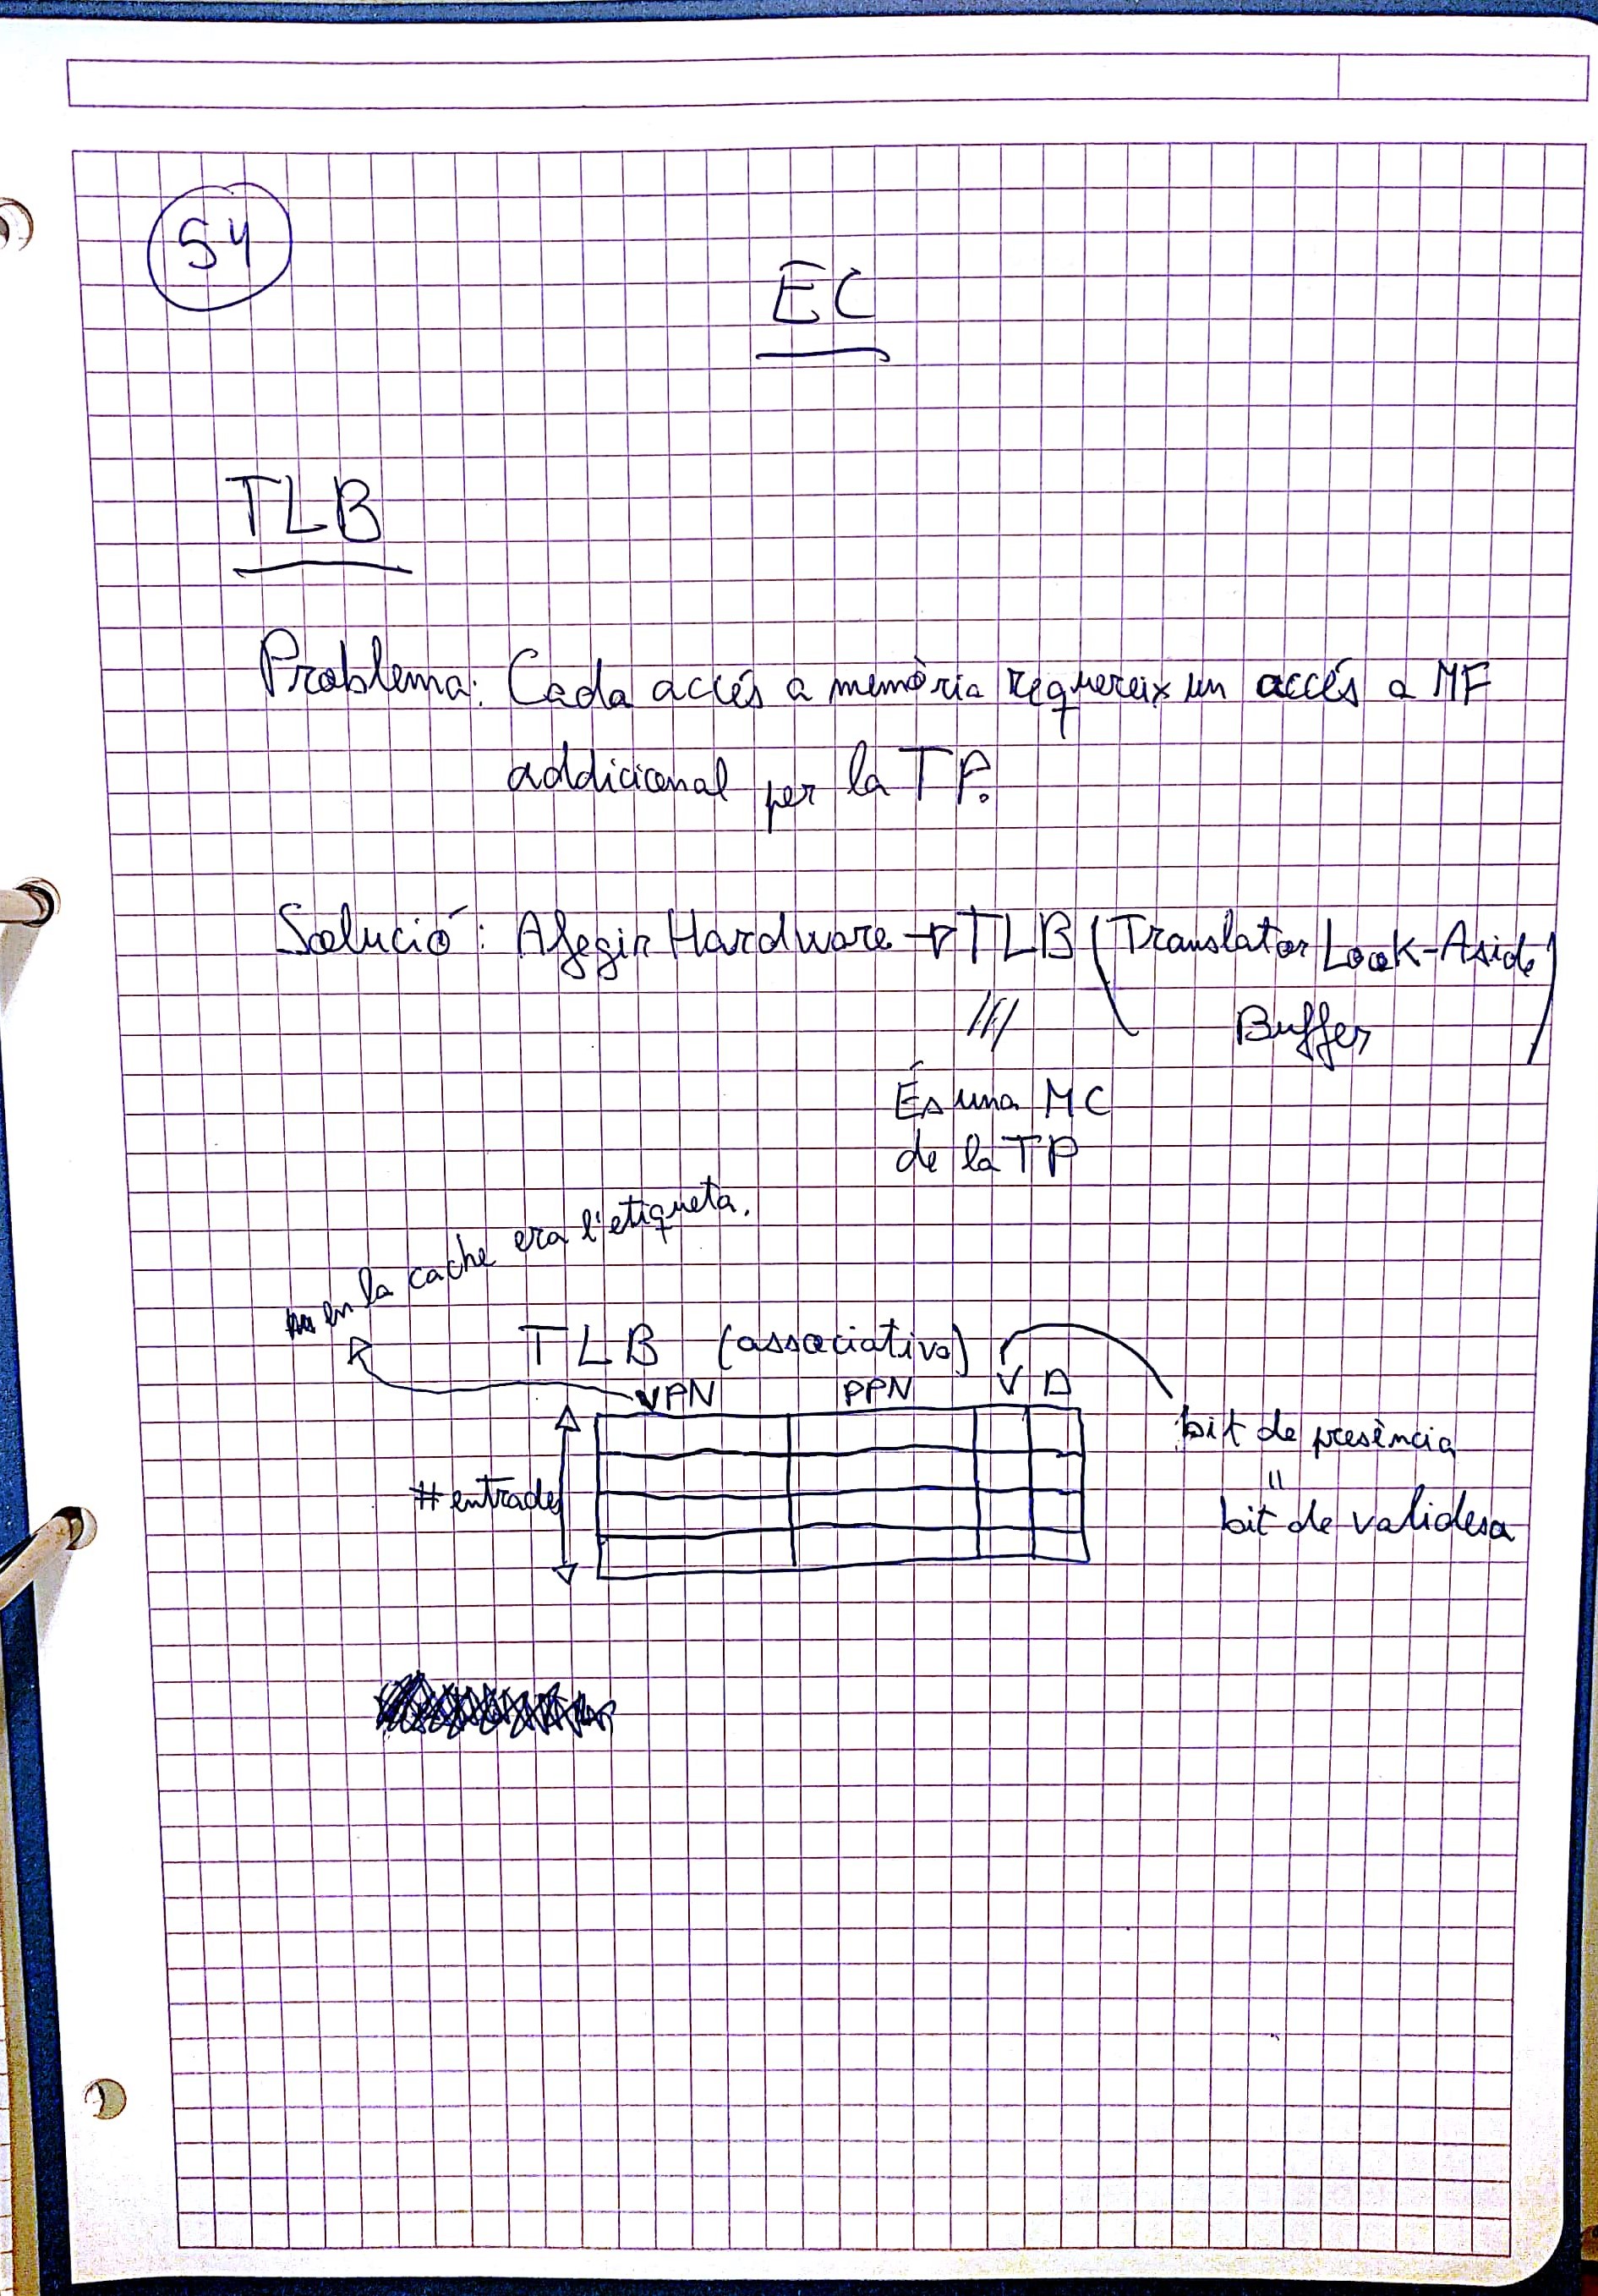 54
EC
TLB
Problema: Cada accés a memòria requereix un accés a MF
addicional per la TP.
Solució: Afegir Hardware → TLB (Translator Look-Aside
Buffer)
És una MC
de la TP
en la cache era l'etiqueta.
TLB (associativa)
VPN PPN V D
bit de presència
# entrades
=
bit de validesa